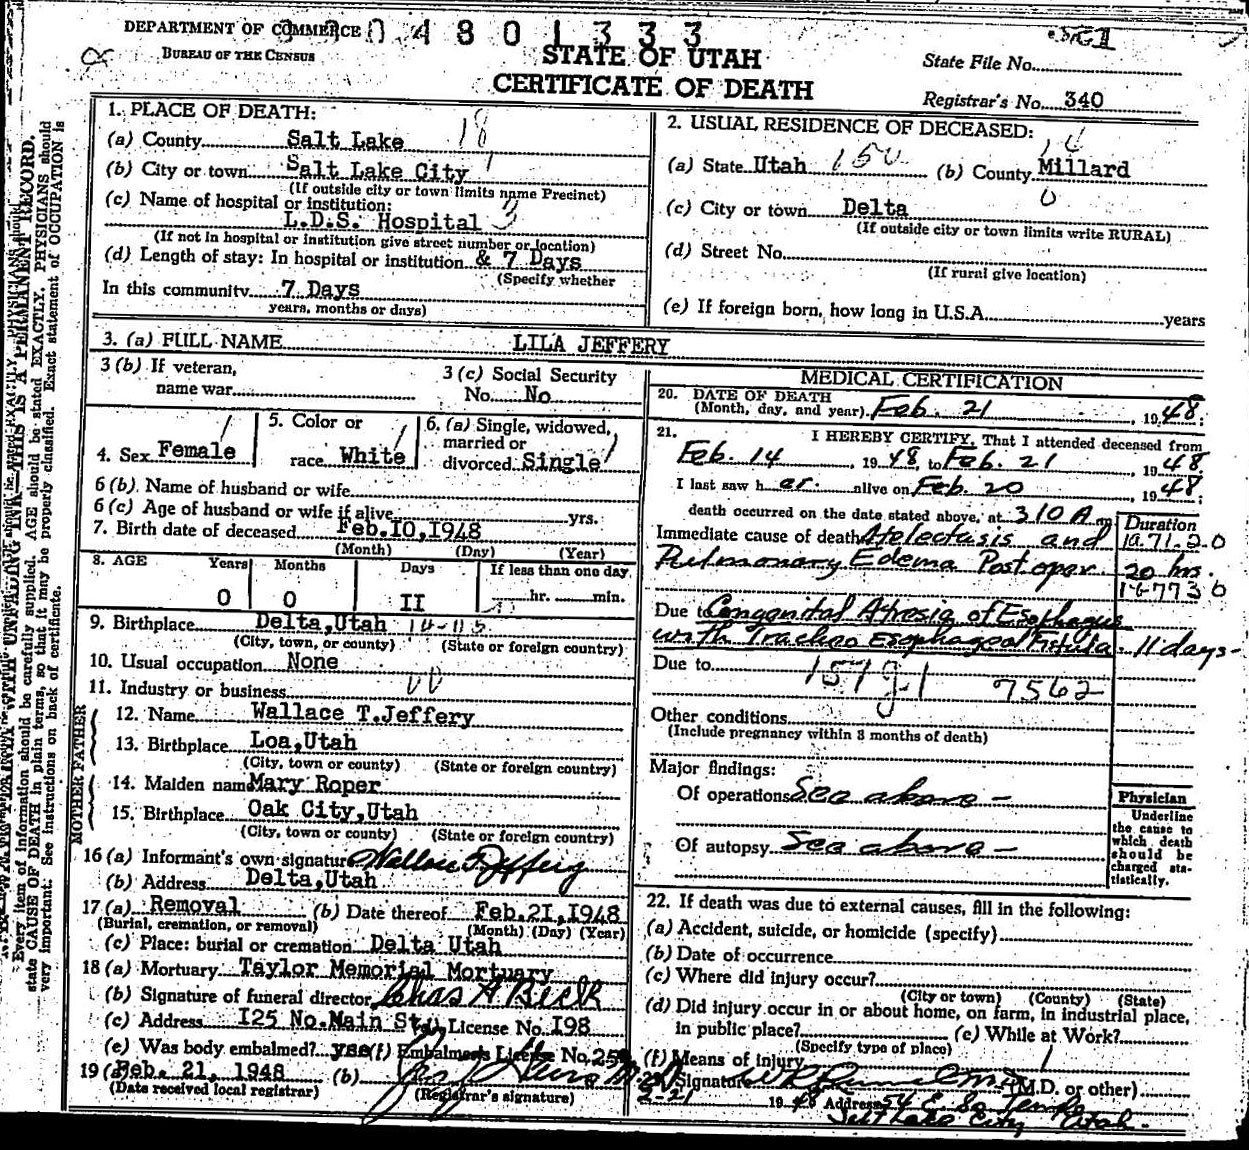 DEPARTMENT OF COMMERCE 0 4 8 0 1 3 3 3
BUREAU OF THE CENSUS
STATE OF UTAH
CERTIFICATE OF DEATH
State File No.
Registrar's No. 340
1. PLACE OF DEATH:
(a) County Salt Lake 18
(b) City or town Salt Lake City 1
(If outside city or town limits name Precinct)
(c) Name of hospital or institution:
L.D.S. Hospital 3
(If not in hospital or institution give street number or location)
(d) Length of stay: In hospital or institution & 7 Days
(Specify whether
In this community 7 Days
years, months or days)
2. USUAL RESIDENCE OF DECEASED:
(a) State Utah 150 (b) County Millard 14
(c) City or town Delta 0
(If outside city or town limits write RURAL)
(d) Street No.
(If rural give location)
(e) If foreign born, how long in U.S.A. years
3. (a) FULL NAME LILA JEFFERY
3 (b) If veteran,
name war
3 (c) Social Security
No. No
4. Sex Female
5. Color or
race White
6. (a) Single, widowed,
married or
divorced Single
6 (b). Name of husband or wife
6 (c) Age of husband or wife if alive yrs.
7. Birth date of deceased Feb.10,1948
(Month) (Day) (Year)
8. AGE Years Months Days If less than one day
0 0 II hr. min.
9. Birthplace Delta,Utah 14-115
(City, town, or county) (State or foreign country)
10. Usual occupation None
11. Industry or business
FATHER
12. Name Wallace T.Jeffery
13. Birthplace Loa,Utah
(City, town or county) (State or foreign country)
MOTHER
14. Maiden name Mary Roper
15. Birthplace Oak City,Utah
(City, town or county) (State or foreign country)
16 (a) Informant's own signature Wallace T Jeffery
(b) Address Delta,Utah
17 (a) Removal (b) Date thereof Feb.21,1948
(Burial, cremation, or removal) (Month) (Day) (Year)
(c) Place: burial or cremation Delta Utah
18 (a) Mortuary Taylor Memorial Mortuary
(b) Signature of funeral director Chas A. Beck
(c) Address I25 No.Main St. License No. I98
(e) Was body embalmed? yes (f) Embalmer's License No. 25
19 (a) Feb. 21, 1948 (b)
(Date received local registrar) (Registrar's signature)
MEDICAL CERTIFICATION
20. DATE OF DEATH
(Month, day, and year) Feb. 21, 1948.
21. I HEREBY CERTIFY, That I attended deceased from
Feb. 14, 1948, to Feb. 21, 1948.
I last saw her alive on Feb. 20, 1948.
death occurred on the date stated above, at 310 A m
Duration
Immediate cause of death Atelectasis and
Pulmonary Edema Post oper 20 hrs.
Due to Congenital Atresia of Esophagus
with Tracheo Esophageal Fistula. 11 days-
Due to 157g-1 7562
Other conditions
(Include pregnancy within 3 months of death)
Major findings:
Of operations See above-
Of autopsy See above-
Physician
Underline
the cause to
which death
should be
charged sta-
tistically.
22. If death was due to external causes, fill in the following:
(a) Accident, suicide, or homicide (specify)
(b) Date of occurrence
(c) Where did injury occur?
(City or town) (County) (State)
(d) Did injury occur in or about home, on farm, in industrial place,
in public place? (e) While at Work?
(Specify type of place)
(f) Means of injury
Signature (M.D. or other)
2-21 1948 Address 54 E. So. Temple
Salt Lake City Utah.
THIS IS A PERMANENT RECORD.
Every item of information should be carefully supplied. AGE should be stated EXACTLY. PHYSICIANS should
state CAUSE OF DEATH in plain terms, so that it may be properly classified. Exact statement of OCCUPATION is
very important. See instructions on back of certificate.